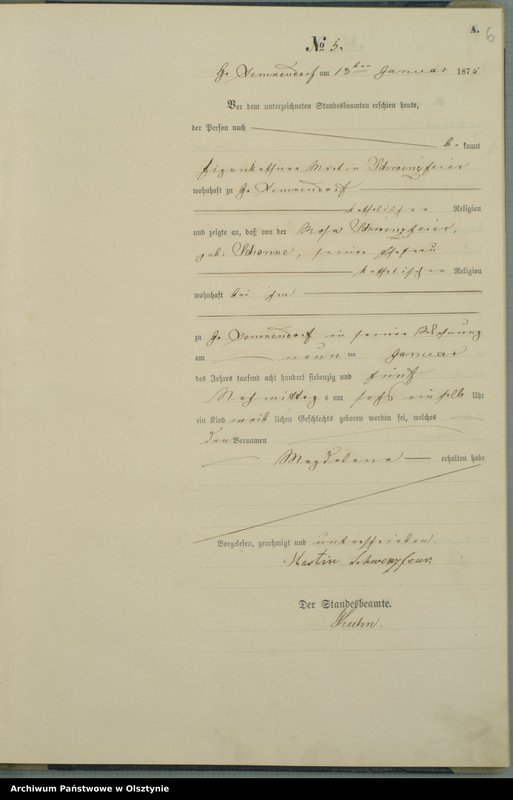 A.
6
No 5.
Gr. am 13ten Januar 1875
Vor dem unterzeichneten Standesbeamten erschien heute,
der Person nach
be kannt
Eigenkäthner Martin Schwenzfeier
wohnhaft zu Gr.
katholischer Religion
und zeigte an, daß von der Rosa Schwenzfeier,
geb: seiner Ehefrau
katholischer Religion
wohnhaft bei ihm
zu Gr. in seiner Wohnung
am neun ten Januar
des Jahres tausend acht hundert siebenzig und fünf
Nachmittags um sechs ein halb Uhr
ein Kind weib lichen Geschlechts geboren worden sei, welches
den Vornamen
Magdalena erhalten habe
Vorgelesen, genehmigt und unterschrieben.
Martin Schwenzfeier
Der Standesbeamte.
Kuhn.
Archiwum Państwowe w Olsztynie